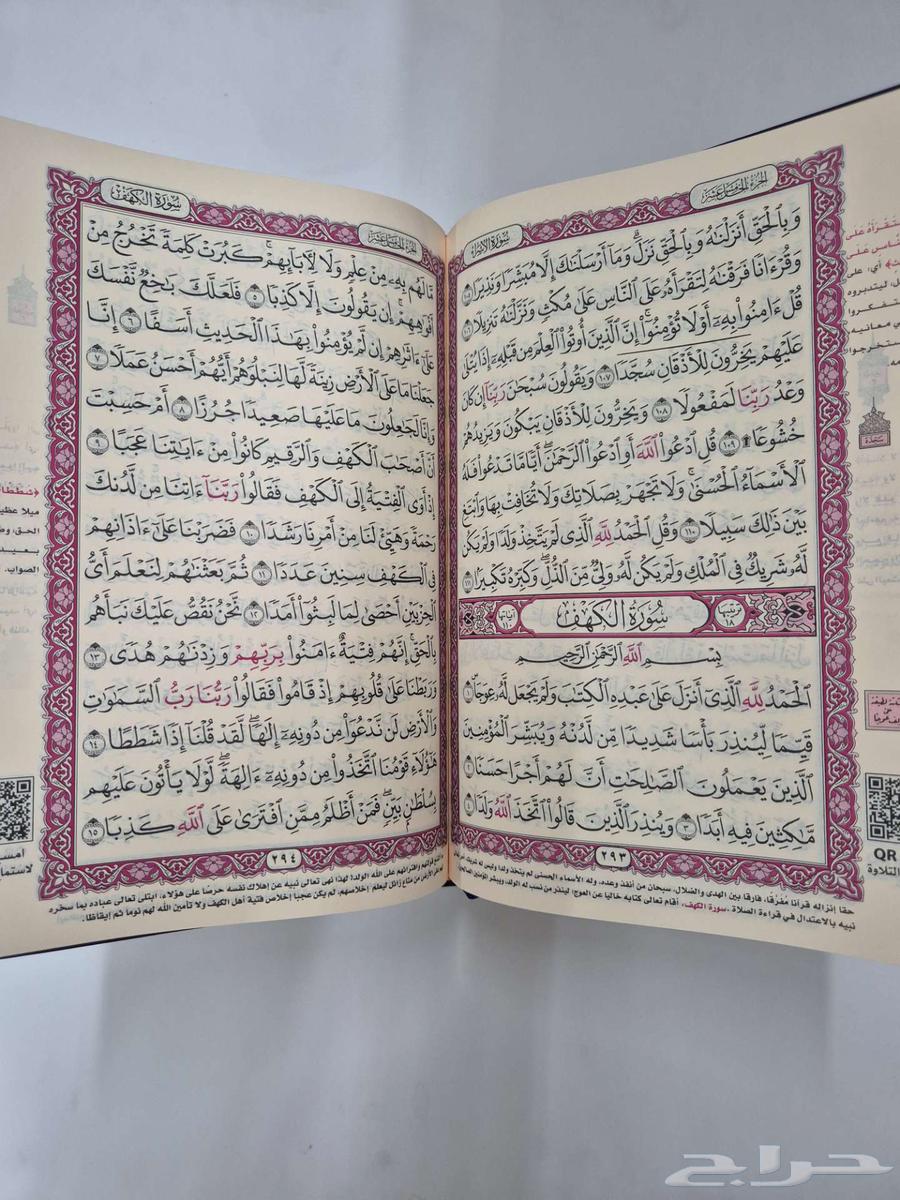 سورة الإسراء
الجزء الخامس عشر
وَبِٱلْحَقِّ أَنزَلْنَٰهُ وَبِٱلْحَقِّ نَزَلَ ۗ وَمَآ أَرْسَلْنَٰكَ إِلَّا مُبَشِّرًا وَنَذِيرًا ١٠٥
وَقُرْءَانًا فَرَقْنَٰهُ لِتَقْرَأَهُۥ عَلَى ٱلنَّاسِ عَلَىٰ مُكْثٍ وَنَزَّلْنَٰهُ تَنزِيلًا ١٠٦
قُلْ ءَامِنُوا۟ بِهِۦٓ أَوْ لَا تُؤْمِنُوٓا۟ ۚ إِنَّ ٱلَّذِينَ أُوتُوا۟ ٱلْعِلْمَ مِن قَبْلِهِۦٓ إِذَا يُتْلَىٰ
عَلَيْهِمْ يَخِرُّونَ لِلْأَذْقَانِ سُجَّدًا ١٠٧ وَيَقُولُونَ سُبْحَٰنَ رَبِّنَآ إِن كَانَ
وَعْدُ رَبِّنَا لَمَفْعُولًا ١٠٨ وَيَخِرُّونَ لِلْأَذْقَانِ يَبْكُونَ وَيَزِيدُهُمْ
خُشُوعًا ۩ ١٠٩ قُلِ ٱدْعُوا۟ ٱللَّهَ أَوِ ٱدْعُوا۟ ٱلرَّحْمَٰنَ ۖ أَيًّا مَّا تَدْعُوا۟ فَلَهُ
ٱلْأَسْمَآءُ ٱلْحُسْنَىٰ ۚ وَلَا تَجْهَرْ بِصَلَاتِكَ وَلَا تُخَافِتْ بِهَا وَٱبْتَغِ
بَيْنَ ذَٰلِكَ سَبِيلًا ١١٠ وَقُلِ ٱلْحَمْدُ لِلَّهِ ٱلَّذِى لَمْ يَتَّخِذْ وَلَدًا وَلَمْ يَكُن
لَّهُۥ شَرِيكٌ فِى ٱلْمُلْكِ وَلَمْ يَكُن لَّهُۥ وَلِىٌّ مِّنَ ٱلذُّلِّ ۖ وَكَبِّرْهُ تَكْبِيرًۢا ١١١
ترتيبها ١٨ سورة الكهف آياتها ١١٠
بِسْمِ ٱللَّهِ ٱلرَّحْمَٰنِ ٱلرَّحِيمِ
ٱلْحَمْدُ لِلَّهِ ٱلَّذِىٓ أَنزَلَ عَلَىٰ عَبْدِهِ ٱلْكِتَٰبَ وَلَمْ يَجْعَل لَّهُۥ عِوَجَا ۜ ١
قَيِّمًا لِّيُنذِرَ بَأْسًا شَدِيدًا مِّن لَّدُنْهُ وَيُبَشِّرَ ٱلْمُؤْمِنِينَ
ٱلَّذِينَ يَعْمَلُونَ ٱلصَّٰلِحَٰتِ أَنَّ لَهُمْ أَجْرًا حَسَنًا ٢
مَّٰكِثِينَ فِيهِ أَبَدًا ٣ وَيُنذِرَ ٱلَّذِينَ قَالُوا۟ ٱتَّخَذَ ٱللَّهُ وَلَدًا ٤
٢٩٣
حقا إنزاله قرآنا مُفرّقا، فارقا بين الهدى والضلال، سبحان من أنفذ وعده، وله الأسماء الحسنى لم يتخذ ولدا وليس له شريك،
نبيه بالاعتدال في قراءة الصلاة. سورة الكهف: أقام تعالى كتابه خاليا عن العوج، لينذر من نسب له الولد، ويبشر المؤمنين
QR
التلاوة
سجدة
سورة الكهف
الجزء الخامس عشر
مَّا لَهُم بِهِۦ مِنْ عِلْمٍ وَلَا لِءَابَآئِهِمْ ۚ كَبُرَتْ كَلِمَةً تَخْرُجُ مِنْ
أَفْوَٰهِهِمْ ۚ إِن يَقُولُونَ إِلَّا كَذِبًا ٥ فَلَعَلَّكَ بَٰخِعٌ نَّفْسَكَ
عَلَىٰٓ ءَاثَٰرِهِمْ إِن لَّمْ يُؤْمِنُوا۟ بِهَٰذَا ٱلْحَدِيثِ أَسَفًا ٦ إِنَّا
جَعَلْنَا مَا عَلَى ٱلْأَرْضِ زِينَةً لَّهَا لِنَبْلُوَهُمْ أَيُّهُمْ أَحْسَنُ عَمَلًا ٧
وَإِنَّا لَجَٰعِلُونَ مَا عَلَيْهَا صَعِيدًا جُرُزًا ٨ أَمْ حَسِبْتَ
أَنَّ أَصْحَٰبَ ٱلْكَهْفِ وَٱلرَّقِيمِ كَانُوا۟ مِنْ ءَايَٰتِنَا عَجَبًا ٩
إِذْ أَوَى ٱلْفِتْيَةُ إِلَى ٱلْكَهْفِ فَقَالُوا۟ رَبَّنَآ ءَاتِنَا مِن لَّدُنكَ
رَحْمَةً وَهَيِّئْ لَنَا مِنْ أَمْرِنَا رَشَدًا ١٠ فَضَرَبْنَا عَلَىٰٓ ءَاذَانِهِمْ
فِى ٱلْكَهْفِ سِنِينَ عَدَدًا ١١ ثُمَّ بَعَثْنَٰهُمْ لِنَعْلَمَ أَىُّ
ٱلْحِزْبَيْنِ أَحْصَىٰ لِمَا لَبِثُوٓا۟ أَمَدًا ١٢ نَّحْنُ نَقُصُّ عَلَيْكَ نَبَأَهُم
بِٱلْحَقِّ ۚ إِنَّهُمْ فِتْيَةٌ ءَامَنُوا۟ بِرَبِّهِمْ وَزِدْنَٰهُمْ هُدًى ١٣
وَرَبَطْنَا عَلَىٰ قُلُوبِهِمْ إِذْ قَامُوا۟ فَقَالُوا۟ رَبُّنَا رَبُّ ٱلسَّمَٰوَٰتِ
وَٱلْأَرْضِ لَن نَّدْعُوَا۟ مِن دُونِهِۦٓ إِلَٰهًا ۖ لَّقَدْ قُلْنَآ إِذًا شَطَطًا ١٤
هَٰٓؤُلَآءِ قَوْمُنَا ٱتَّخَذُوا۟ مِن دُونِهِۦٓ ءَالِهَةً ۖ لَّوْلَا يَأْتُونَ عَلَيْهِم
بِسُلْطَٰنٍۭ بَيِّنٍ ۖ فَمَنْ أَظْلَمُ مِمَّنِ ٱفْتَرَىٰ عَلَى ٱللَّهِ كَذِبًا ١٥
٢٩٤
وافترائهم على الله الولد! لهذا نهى تعالى نبيه عن إهلاك نفسه حرصًا على هؤلاء، ابتلى تعالى عباده بما سخره
الأرض من متاع زائل ليعلم إخلاصهم، لم يكن عجبا إخلاص فتية أهل الكهف ولا تأمين الله لهم نوما ثم إيقاظا.
﴿شططا﴾
ميلا عظيما
الصواب.
حراج